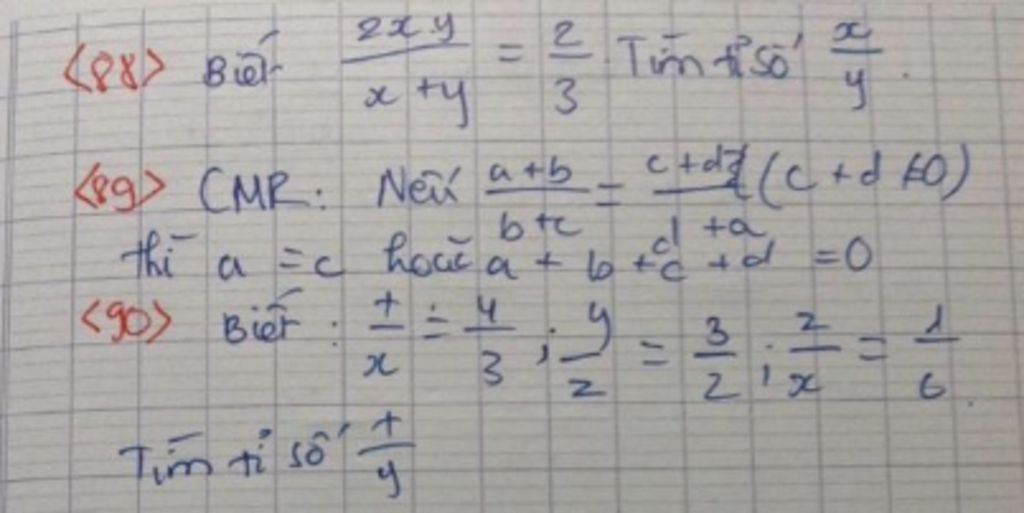 <88> Biết 2xy/x+y = 2/3. Tìm tỉ số x/y.
<89> CMR: Nếu a+b/b+c = c+d/d+a (c+d≠0)
thì a = c hoặc a + b + c + d = 0
<90> Biết : t/x = 4/3 ; y/z = 3/2 ; z/x = 1/6.
Tìm tỉ số t/y